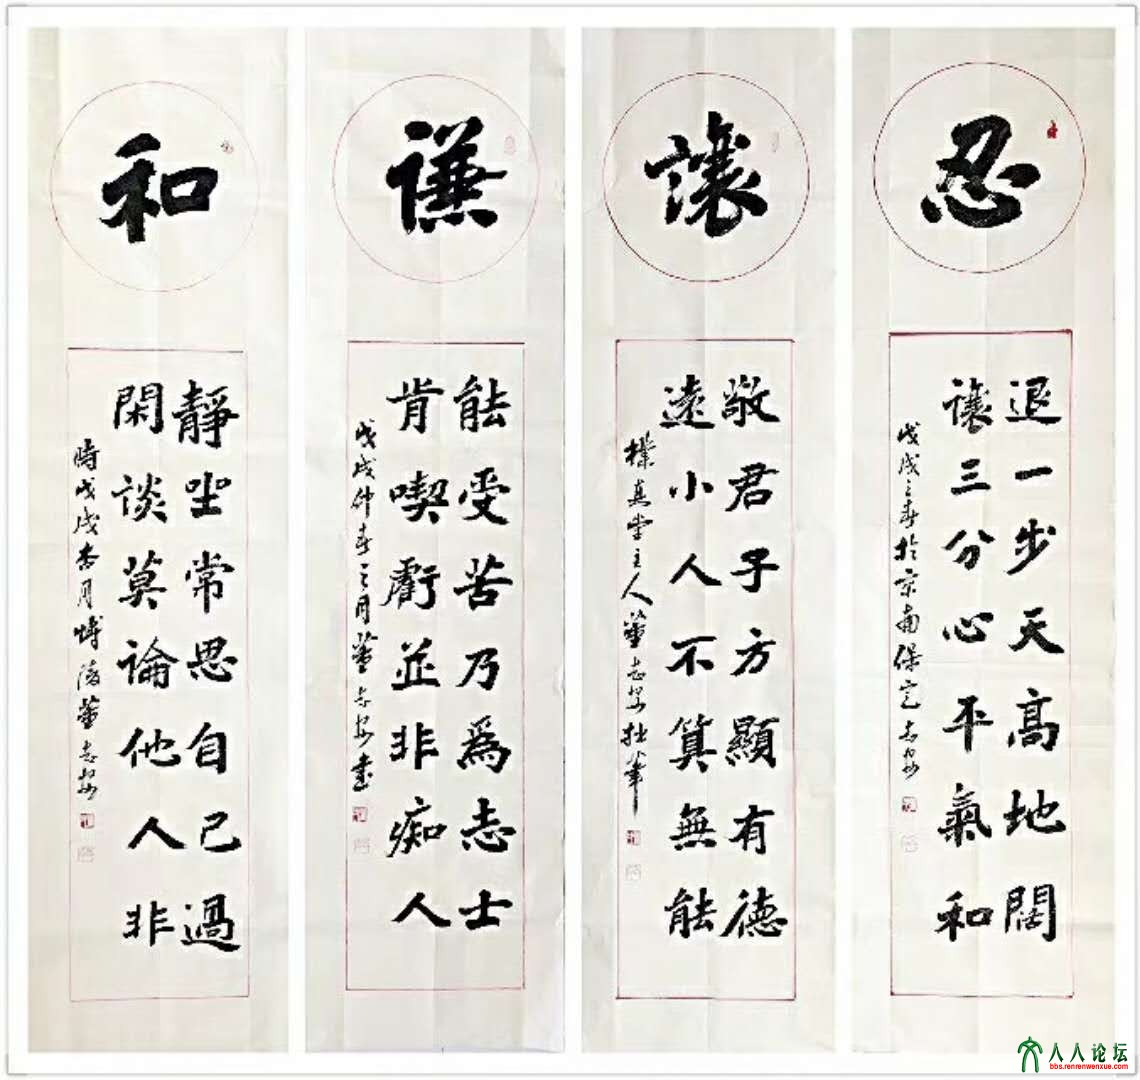 忍
退一步天高地闊
讓三分心平氣和
戊戌之春於京南保定志
讓
敬君子方顯有德
遠小人不算無能
樸真堂主人董志拙筆
謙
能受苦乃爲志士
肯喫虧並非痴人
戊戌仲春之月董志書
和
靜坐常思自己過
閑談莫論他人非
時戊戌杏月博陵董志
人人论坛
bbs.renrenwenxue.com